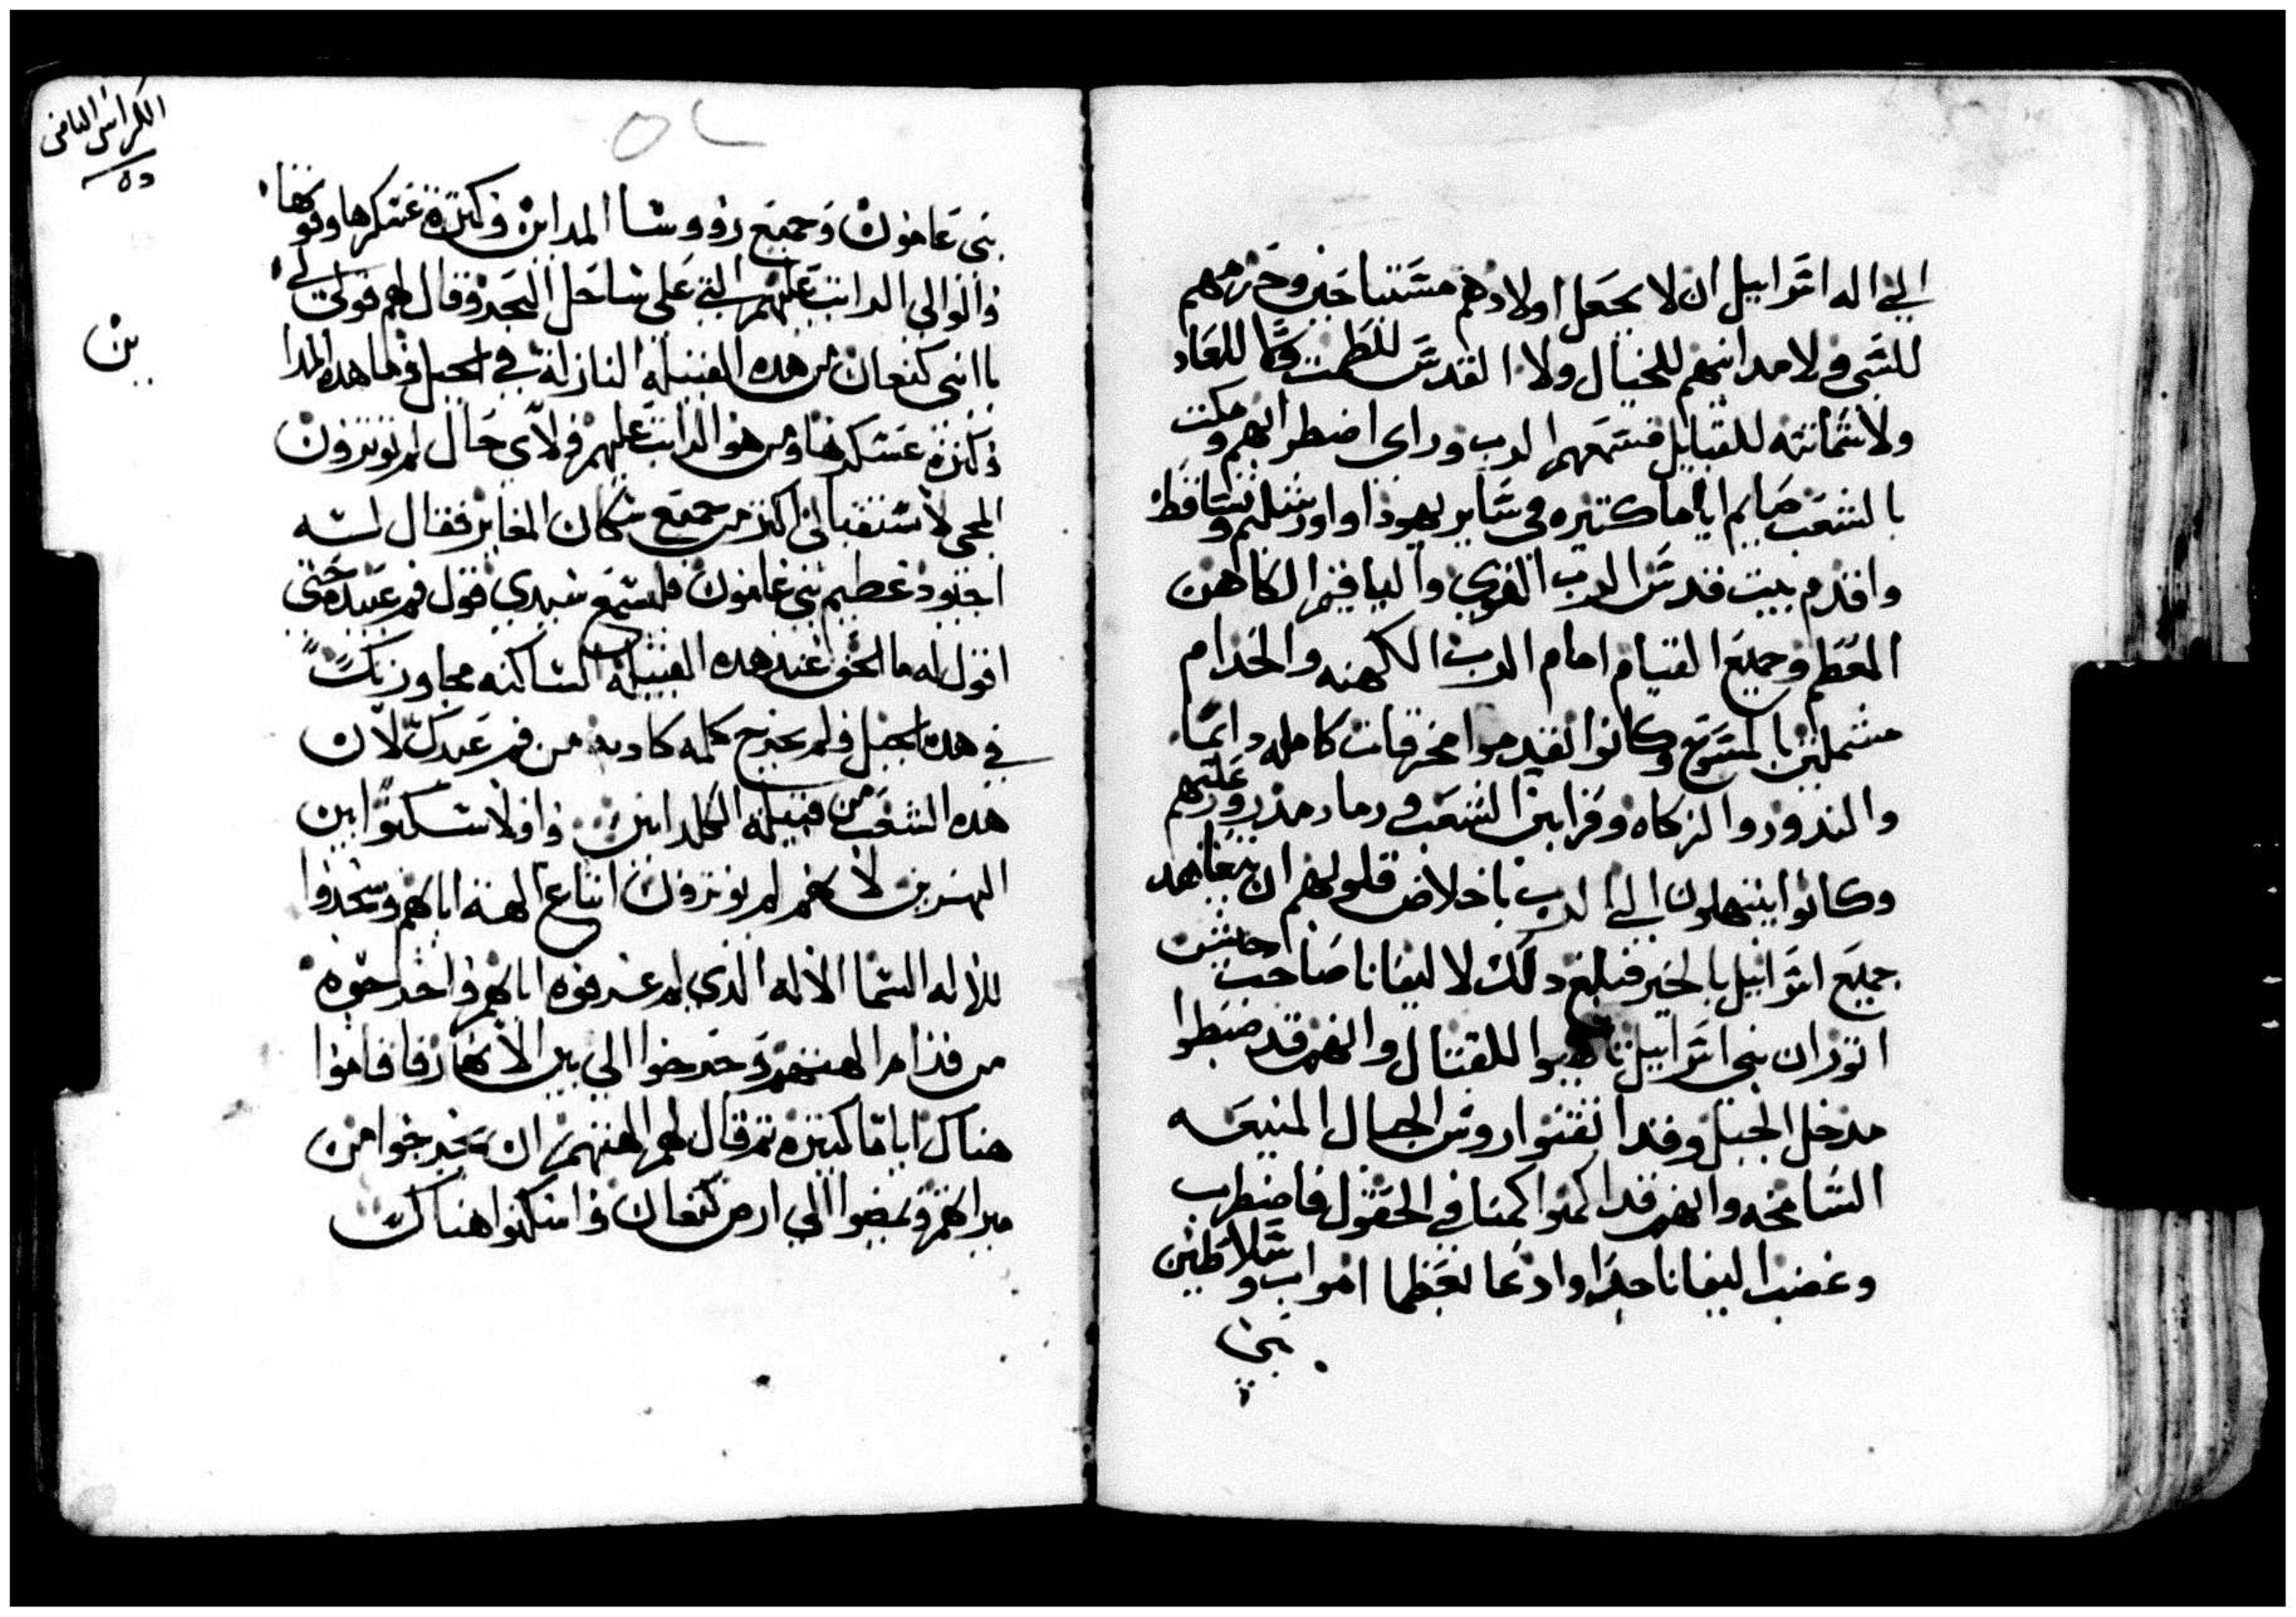 الي اله اسرائيل ان لا يجعل اولادهم مستباحين وحرمهم
للسبي ولا مدانيهم للخبال ولا القدس للطمث وكا للعاد
ولا شماتته للقبايل فسمعهم الرب وراى اضطرابهم ومكث
بالشعب صايم اياما كتيره في ساير يهوذا واورشليم وتساقط
واقدم بيت قدس الرب القوي والياقيم الكاهن
المعظم وجميع القيام امام الرب الكهنه والخدام
مشملين بالمسوح وكانوا يقدموا محرقات كامله دايما
والندور والزكاه وقرابين الشعب ورماد مدرور عليهم
وكانوا يبتهلون الي الرب باخلاص قلوبهم ان يتعاهد
جميع اسرائيل بالخير فبلغ دلك لاليفانا صاحب جيش
اتور ان بني اسرائيل تاهبوا للقتال وانهم قد ضبطوا
مدخل الجبل وقد اتقنوا روس الجبال المنيعه
الشامخه وانهم قد اكمنوا كمنا في الحقول فاضطرب
وغضب اليفانا جدا وادعا بعظما امواب وسلاطين
بني
الكراس التاني
٥٥
٥٢
بني عامون وجميع رووسا المداين وكثرة عسكرها وقوتها
والوالي الراتب عليهم التي على ساحل البحر وقال لهم قولوا لي
يا بني كنعان من هده القبيله النازلة في الجبل وما هده المدا
ين
وكثرة عسكرها ومن هو الراتب عليهم ولاي حال لم يوثرون
المجي لاستقبالي اكثر من جميع سكان المغايز فقال له
اجنود عظيم بني عامون فليسمع سيدي قول فم عبده حتى
اقول له ما الحق عند هده القبيلة الساكنه مجاوريك
في هده الجبل ولم يخرج كلمه كادبه من فم عبدك لان
هده الشعب من قبيلة الكلدانين واولا سكنوا بين
النهرين لانهم لم يوثرون اتباع الهة اباهم وسجدوا
للاله السما الاله الذي لم عرفوه اباهم واخرجوه
من قدام الهتهم وخرجوا الي بين الانهار فاقاموا
هناك اياما كثيره ثم قال لهم الههم ان يخرجوا من
ميراثهم ويمضوا الي ارض كنعان واسكنوا هناك